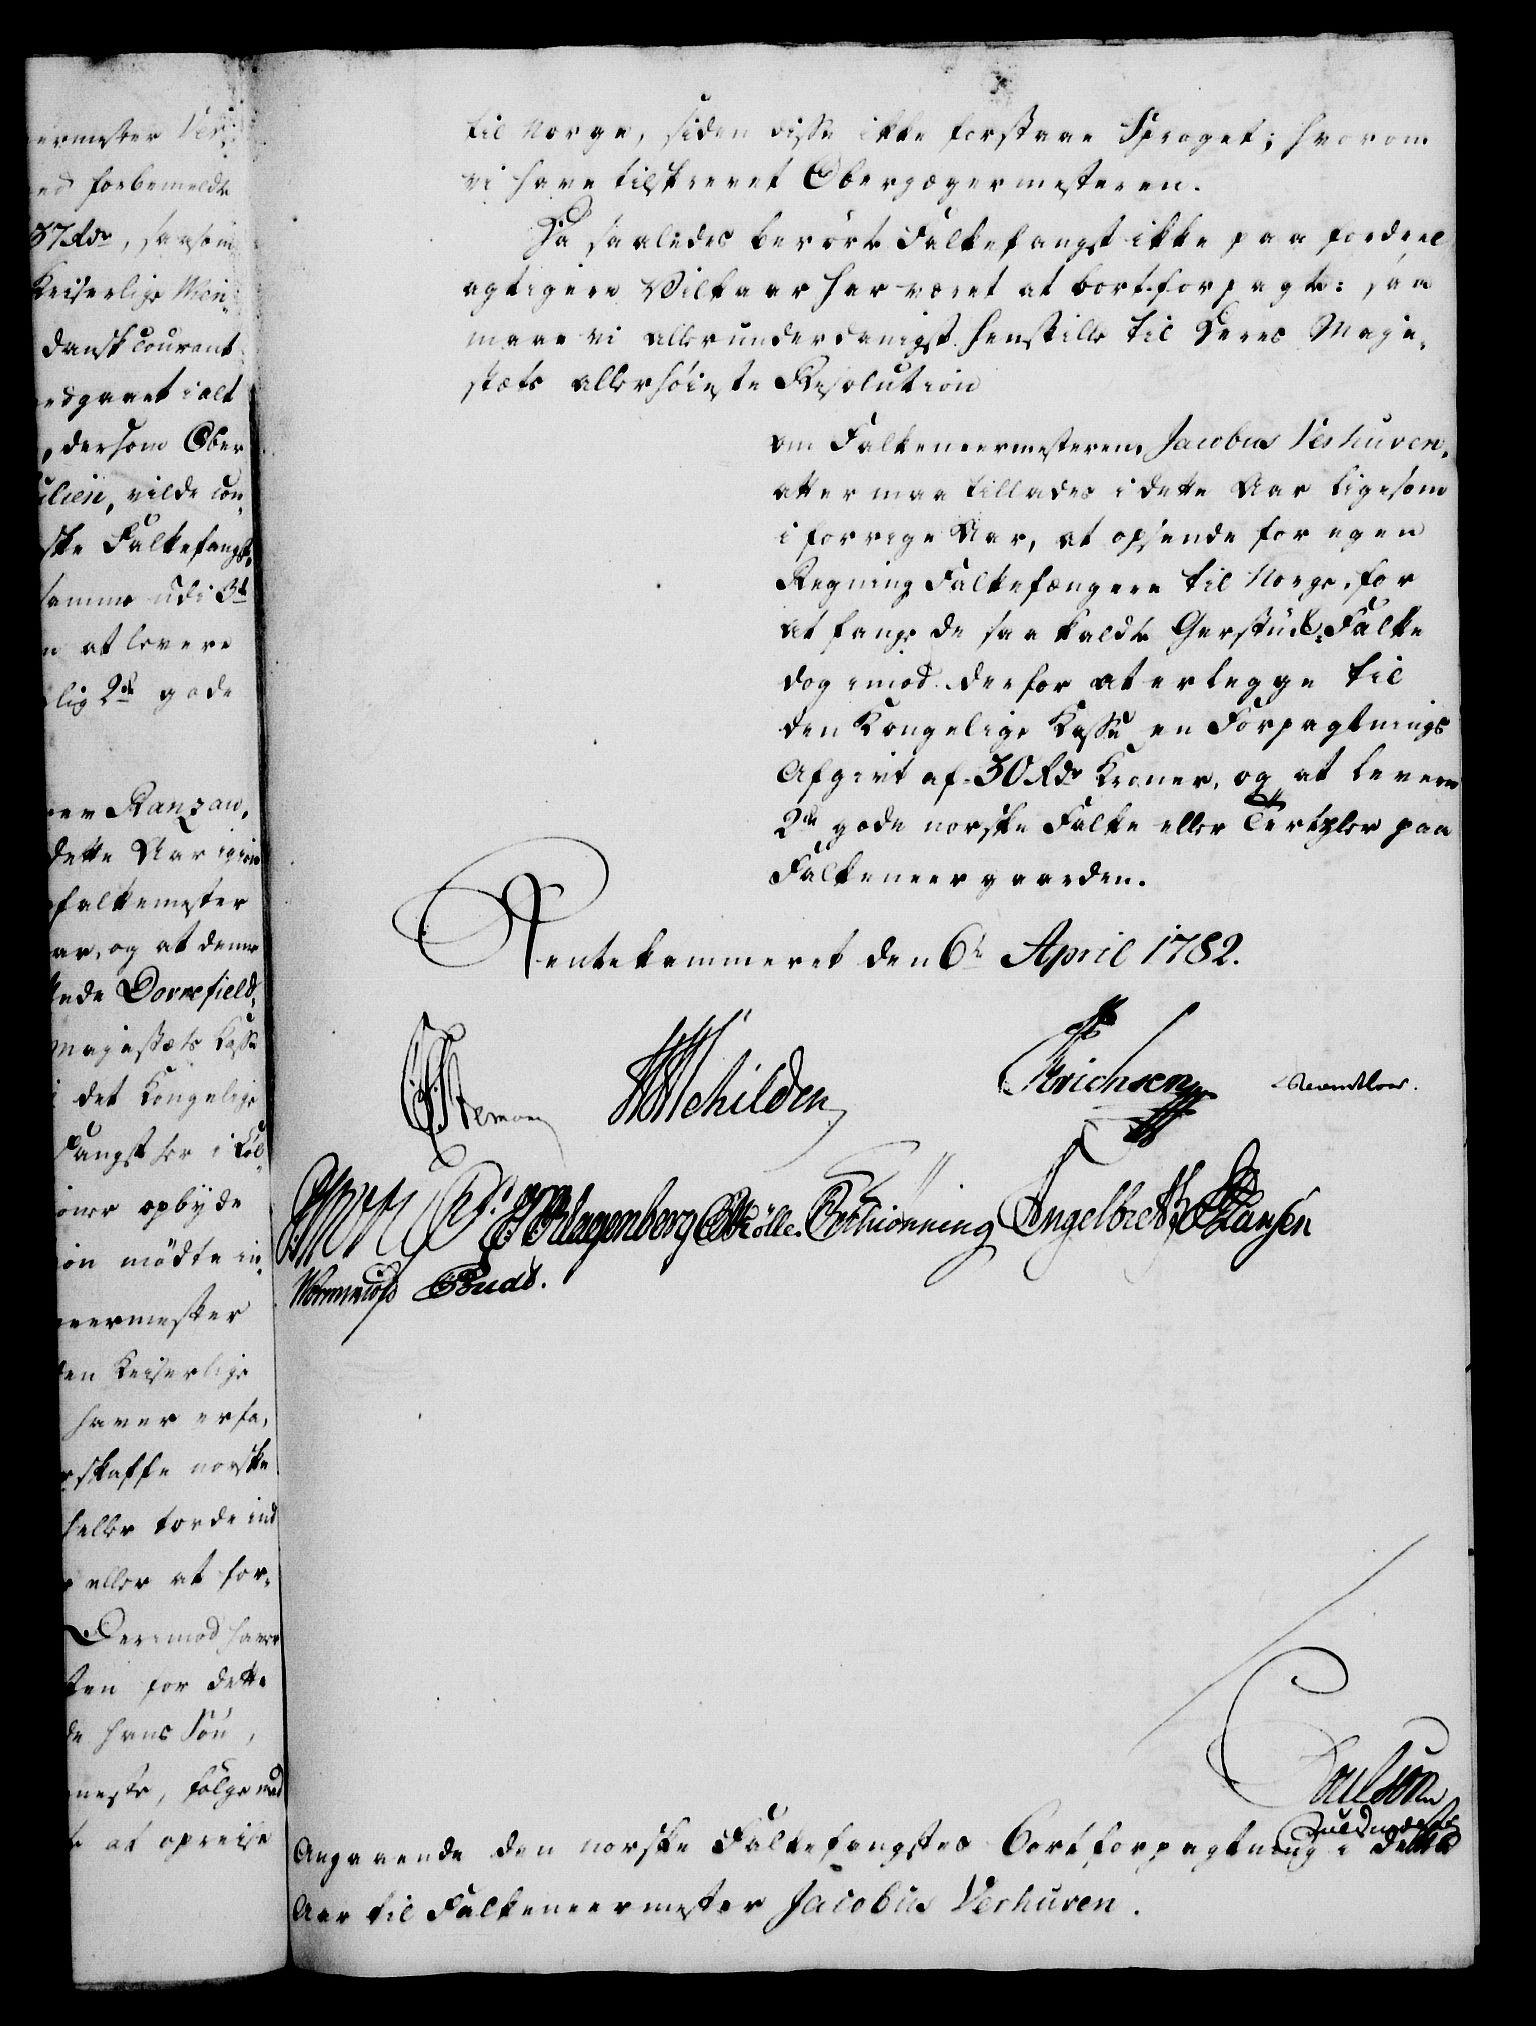 ermester Ver-
ed forbemeldte
37 Rdr, saasom
Keiserlige Min-
dansk Courant
edgaaet i alt
, dersom Ober
vilde con-
ske Falkefangst,
samme udi 3de
n at levere
lig 2de gode
ver Ranzau,
dette Aar igien
falkemester
ar, og at denne
ende Dovrefield,
Majestæts Kasse
i det Kongelige
Fangst her i Køl-
oner opbyde
on mødte in-
eermester
den Keiserlige
haver erfa-
rskaffe norske
heller torde ind
r eller at for-
Derimod haver
ten for dette
de hans Søn,
neste, følge med
at opreise
til Norge, siden disse ikke forstaae Sproget; hvorom
vi have tilskrevet Oberjægermesteren.
Da saaledes berørte Falkefangst ikke paa fordeel
agtigere Vilkaar har været at bortforpagte: saa
maae vi allerunderdanigst henstille til Deres Maje-
stæts allerhøieste Resolution
om Falkeneermesteren Jacobus Verhuven,
atter maa tillades i dette Aar ligesom
i forrige Aar, at opsende for egen
Regning Falkefængere til Norge, for
at fange de saa kaldte Falke
dog imod derfor at erlegge til
den Kongelige Kasse en Forpagtnings
Afgivt af 30 Rdr Kroner, og at levere
2de gode norske Falke eller Tertzler paa
Falkeneergaarden.
Rentekammeret den 6te April 1782.
Stemann Schilden Erichsen Reventlow.
Klagenberg Møller Schiønning Engelbreth Hansen
Wormskiold Budt.
Poulson
Fuldmægtig
Angaaende den norske Falkefangstes Bortforpagtning i dette
Aar til Falkeneermester Jacobus Verhuven.